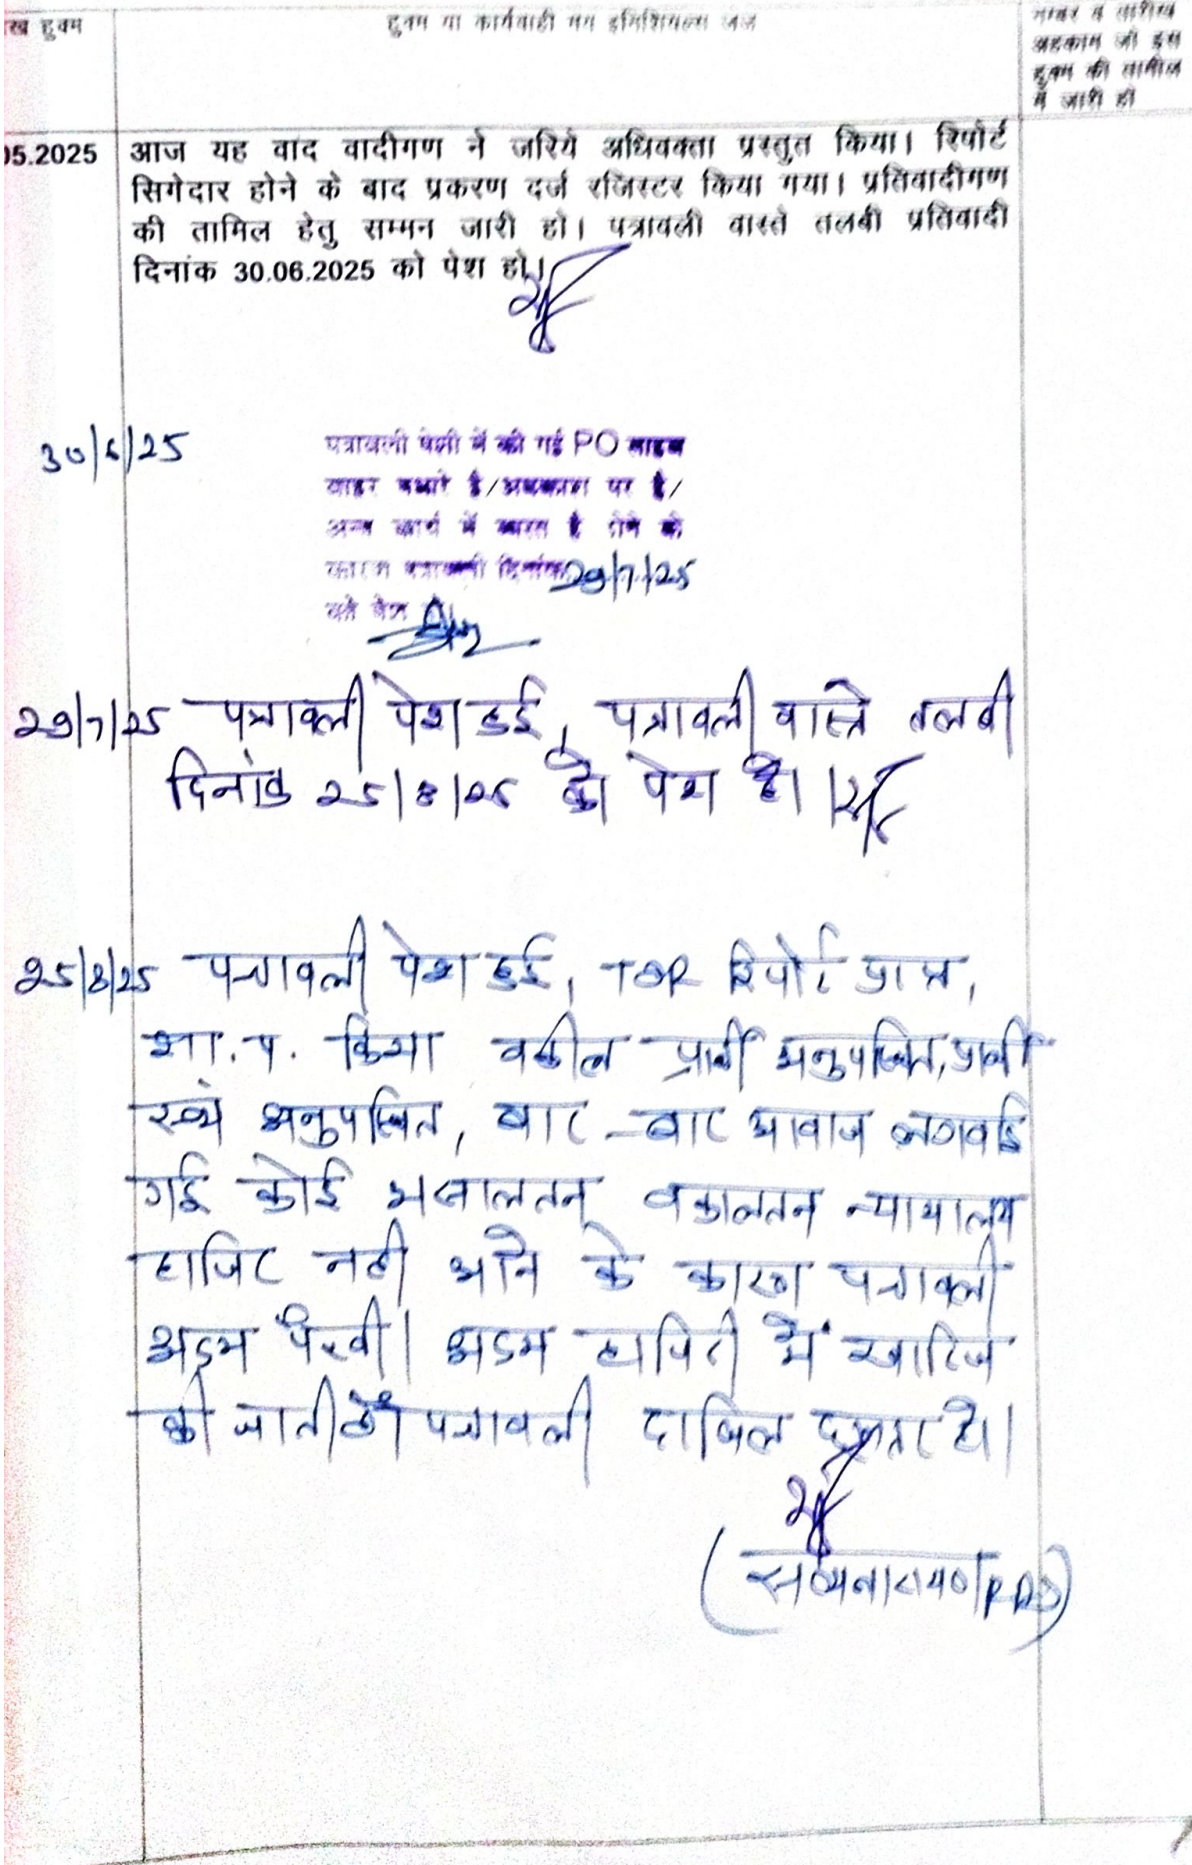 ख हुक्म
हुक्म या कार्यवाही मय इनिशियल्स जज
नम्बर व तारीख
अहकाम जो इस
हुक्म की तामील
में जारी हो
05.2025
आज यह वाद वादीगण ने जरिये अधिवक्ता प्रस्तुत किया। रिपोर्ट
सिगेदार होने के बाद प्रकरण दर्ज रजिस्टर किया गया। प्रतिवादीगण
की तामिल हेतु सम्मन जारी हो। पत्रावली वास्ते तलबी प्रतिवादी
दिनांक 30.06.2025 को पेश हो।
30/6/25
पत्रावली पेशी में की गई PO साहब
बाहर पधारे है/अवकाश पर है/
अन्य कार्य में व्यस्त है होने के
कारण पत्रावली दिनांक 29/7/25
को पेश
29/7/25 पत्रावली पेश हुई, पत्रावली वास्ते तलबी
दिनांक 25/8/25 को पेश हो।
25/8/25 पत्रावली पेश हुई, TDR रिपोर्ट प्राप्त,
शा.प. किया वकील प्रार्थी अनुपस्थित, प्रार्थी
स्वयं अनुपस्थित, बार-बार आवाज लगवाई
गई कोई असालतन वकालतन न्यायालय
हाजिर नही आने के कारण पत्रावली
अदम पैरवी। अदम हाजिरी में खारिज
की जाती है। पत्रावली दाखिल दफ्तर हो।
(सत्यनारायण RAS)